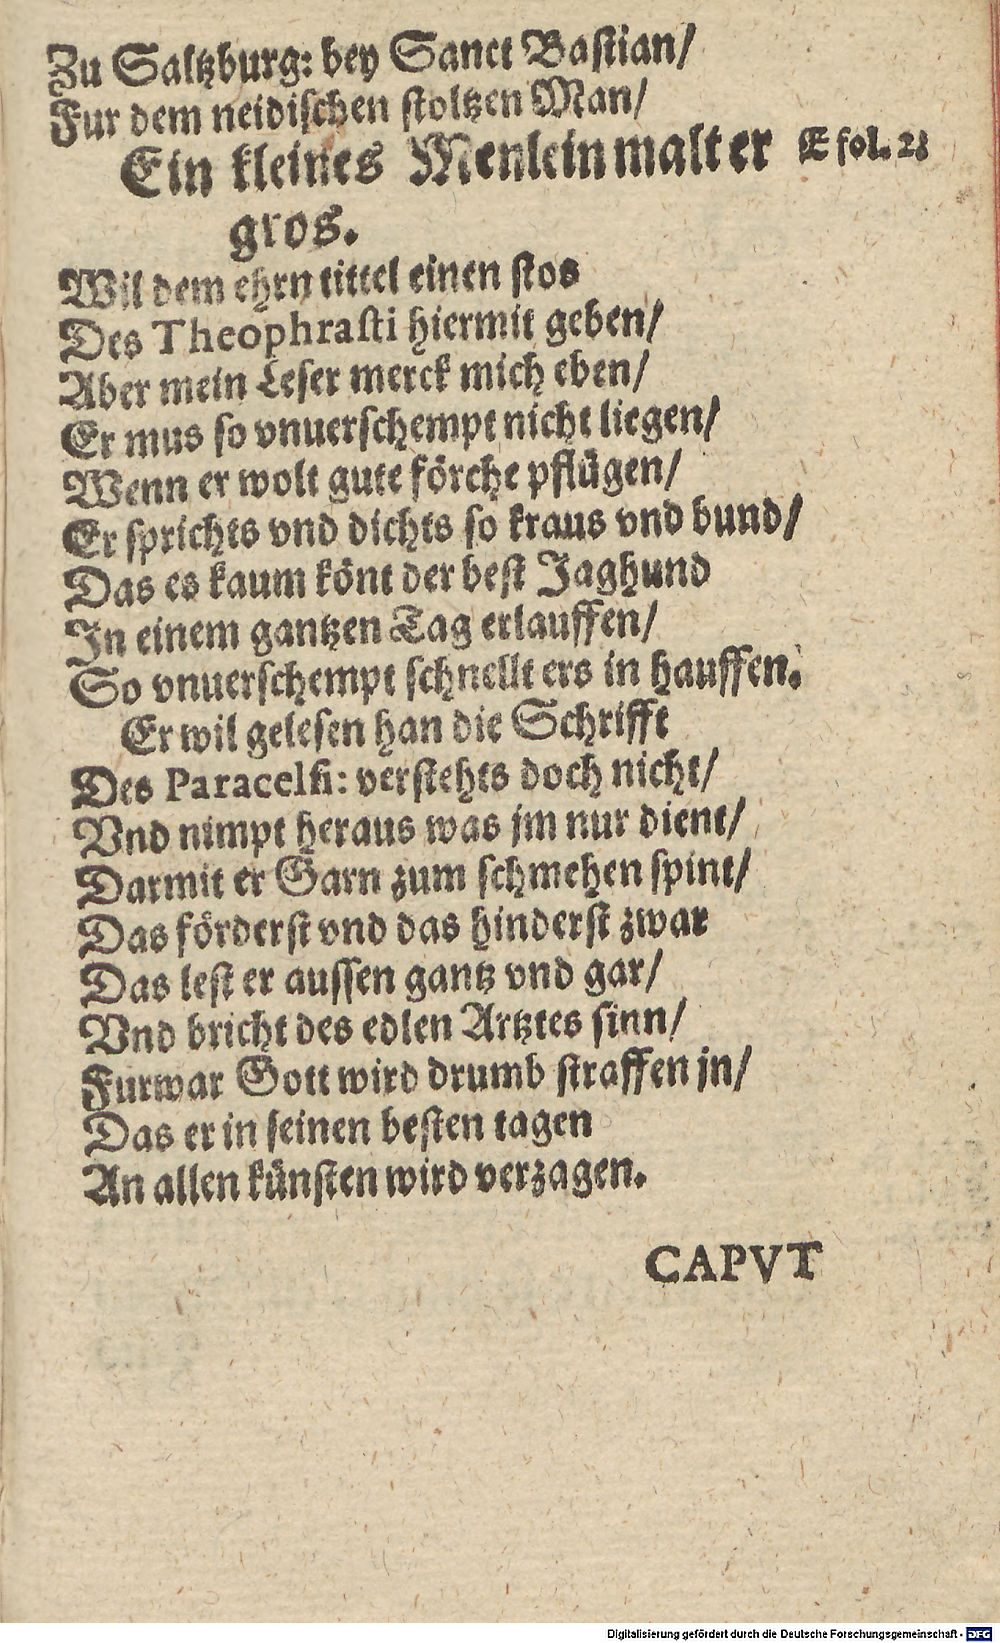 Zu Saltzburg: bey Sanct Bastian/
Fur dem neidischen stoltzen Man/
Ein kleines Menlein malt er
E fol. 28
gros.
Wil dem ehrn tittel einen stos
Des Theophrasti hiermit geben/
Aber mein Leser merck mich eben/
Er mus so vnuerschempt nicht liegen/
Wenn er wolt gute förche pflügen/
Er sprichts vnd dichts so kraus vnd bund/
Das es kaum könt der best Jaghund
In einem gantzen Tag erlauffen/
So vnuerschempt schnellt ers in hauffen.
Er wil gelesen han die Schrifft
Des Paracelsi: verstehts doch nicht/
Vnd nimpt heraus was jm nur dient/
Darmit er Garn zum schmehen spint/
Das förderst vnd das hinderst zwar
Das lest er aussen gantz vnd gar/
Vnd bricht des edlen Artztes sinn/
Furwar Gott wird drumb straffen jn/
Das er in seinen besten tagen
An allen künsten wird verzagen.
CAPVT
Digitalisierung gefördert durch die Deutsche Forschungsgemeinschaft - DFG